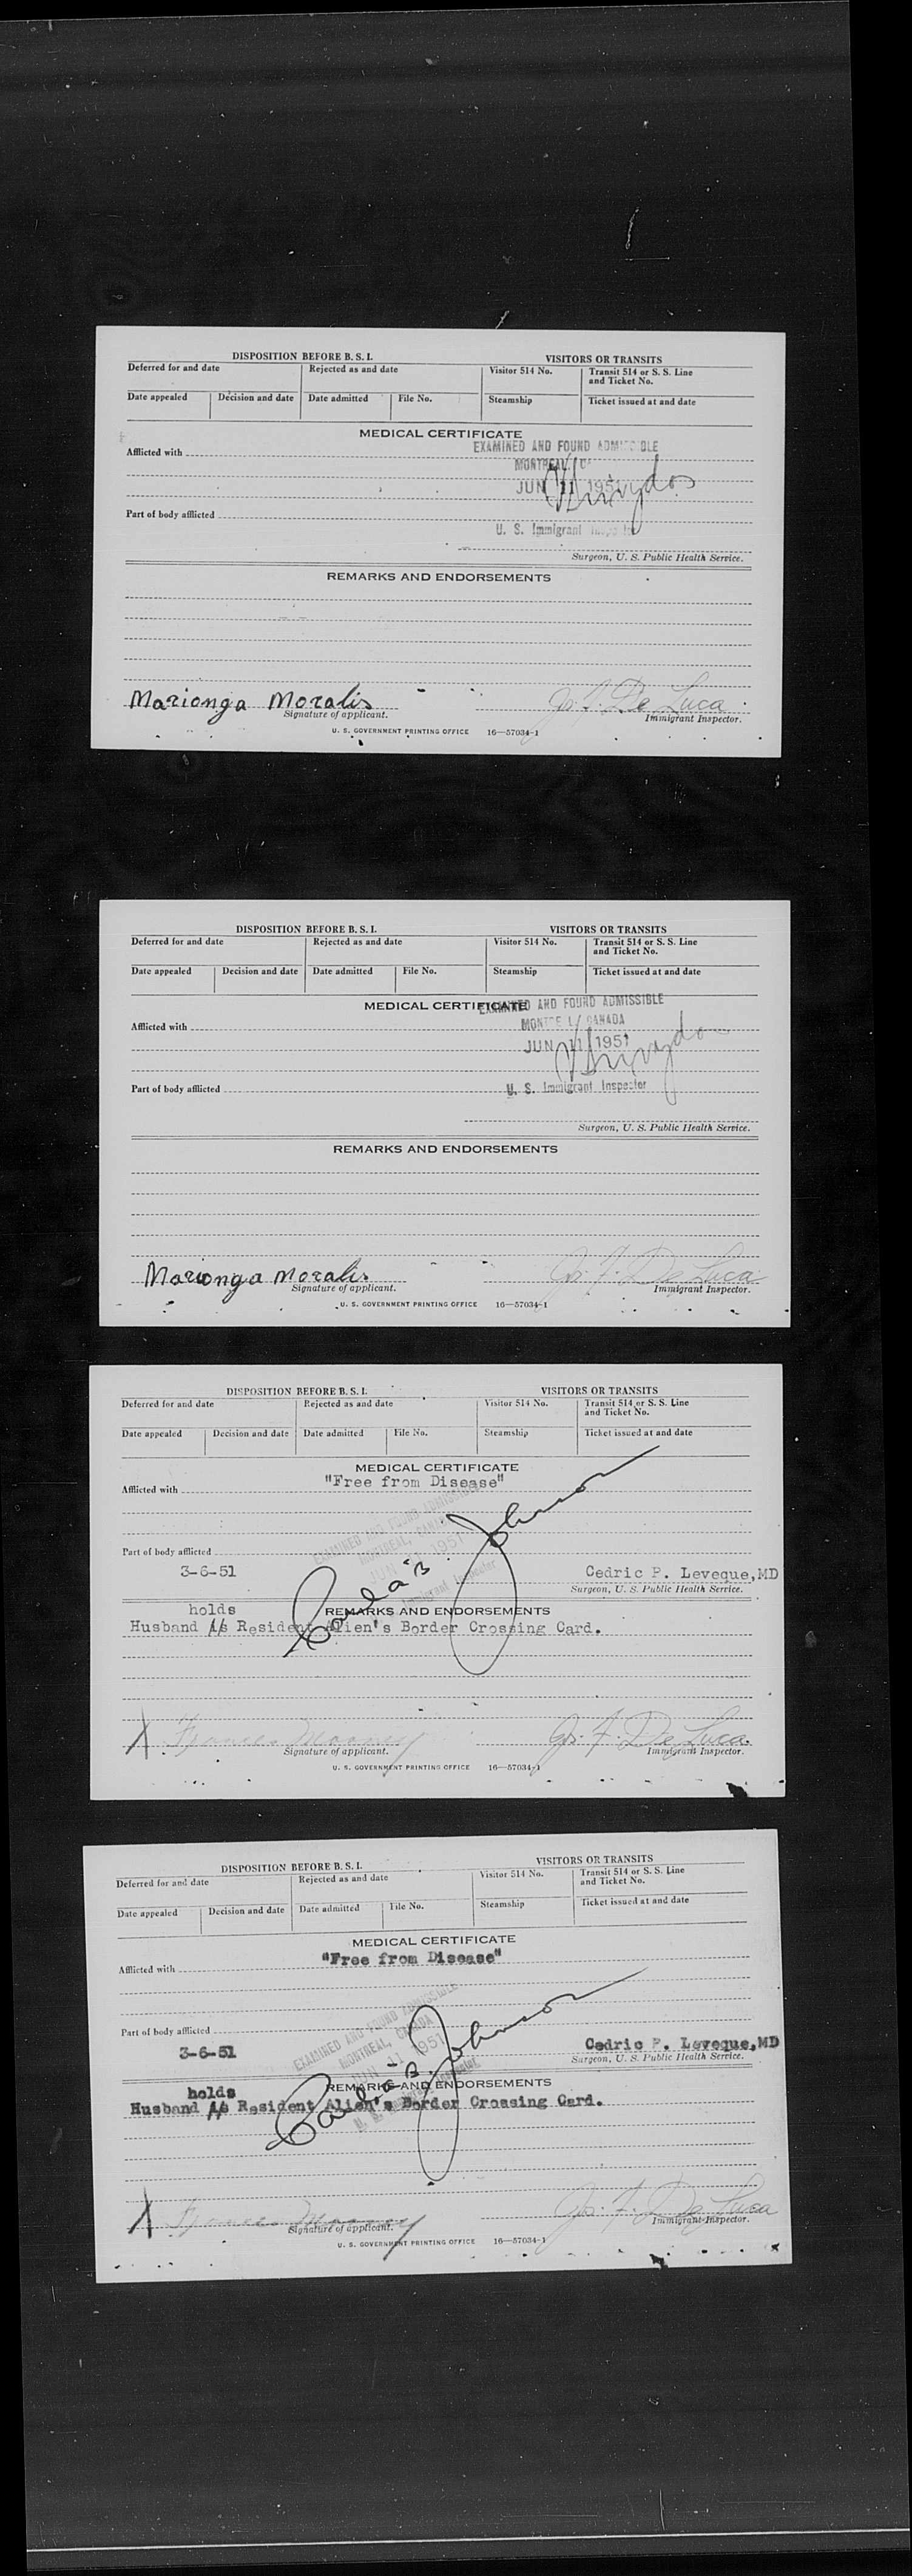 DISPOSITION BEFORE B. S. I. VISITORS OR TRANSITS
Deferred for and date Rejected as and date Visitor 514 No. Transit 514 or S. S. Line and Ticket No.
Date appealed Decision and date Date admitted File No. Steamship Ticket issued at and date
MEDICAL CERTIFICATE
EXAMINED AND FOUND ADMISSIBLE
Afflicted with
MONTREAL
JUN 11 1951
Part of body afflicted
U. S. Immigrant
Surgeon, U. S. Public Health Service.
REMARKS AND ENDORSEMENTS
Marionga Moralis De Luca
Signature of applicant. Immigrant Inspector.
U. S. GOVERNMENT PRINTING OFFICE 16—57034-1
DISPOSITION BEFORE B. S. I. VISITORS OR TRANSITS
Deferred for and date Rejected as and date Visitor 514 No. Transit 514 or S. S. Line and Ticket No.
Date appealed Decision and date Date admitted File No. Steamship Ticket issued at and date
MEDICAL CERTIFICATE
EXAMINED AND FOUND ADMISSIBLE
Afflicted with
MONTREAL CANADA
JUN 11 1951
Part of body afflicted
U. S. Immigrant Inspector
Surgeon, U. S. Public Health Service.
REMARKS AND ENDORSEMENTS
Marionga Moralis De Luca
Signature of applicant. Immigrant Inspector.
U. S. GOVERNMENT PRINTING OFFICE 16—57034-1
DISPOSITION BEFORE B. S. I. VISITORS OR TRANSITS
Deferred for and date Rejected as and date Visitor 514 No. Transit 514 or S. S. Line and Ticket No.
Date appealed Decision and date Date admitted File No. Steamship Ticket issued at and date
MEDICAL CERTIFICATE
"Free from Disease"
Afflicted with
EXAMINED AND FOUND
MONTREAL,
1951
Part of body afflicted
3-6-51 Cedric P. Leveque, MD
Surgeon, U. S. Public Health Service.
B. Johnson
holds REMARKS AND ENDORSEMENTS
Husband Resident Alien's Border Crossing Card.
X Mooney De Luca
Signature of applicant. Immigrant Inspector.
U. S. GOVERNMENT PRINTING OFFICE 16—57034-1
DISPOSITION BEFORE B. S. I. VISITORS OR TRANSITS
Deferred for and date Rejected as and date Visitor 514 No. Transit 514 or S. S. Line and Ticket No.
Date appealed Decision and date Date admitted File No. Steamship Ticket issued at and date
MEDICAL CERTIFICATE
"Free from Disease"
Afflicted with
EXAMINED AND FOUND ADMISSIBLE
MONTREAL, CANADA
11 1951
Part of body afflicted
3-6-51 Cedric P. Leveque, MD
Surgeon, U. S. Public Health Service.
B. Johnson
holds REMARKS AND ENDORSEMENTS
Husband Resident Alien's Border Crossing Card.
X Mooney De Luca
Signature of applicant. Immigrant Inspector.
U. S. GOVERNMENT PRINTING OFFICE 16—57034-1